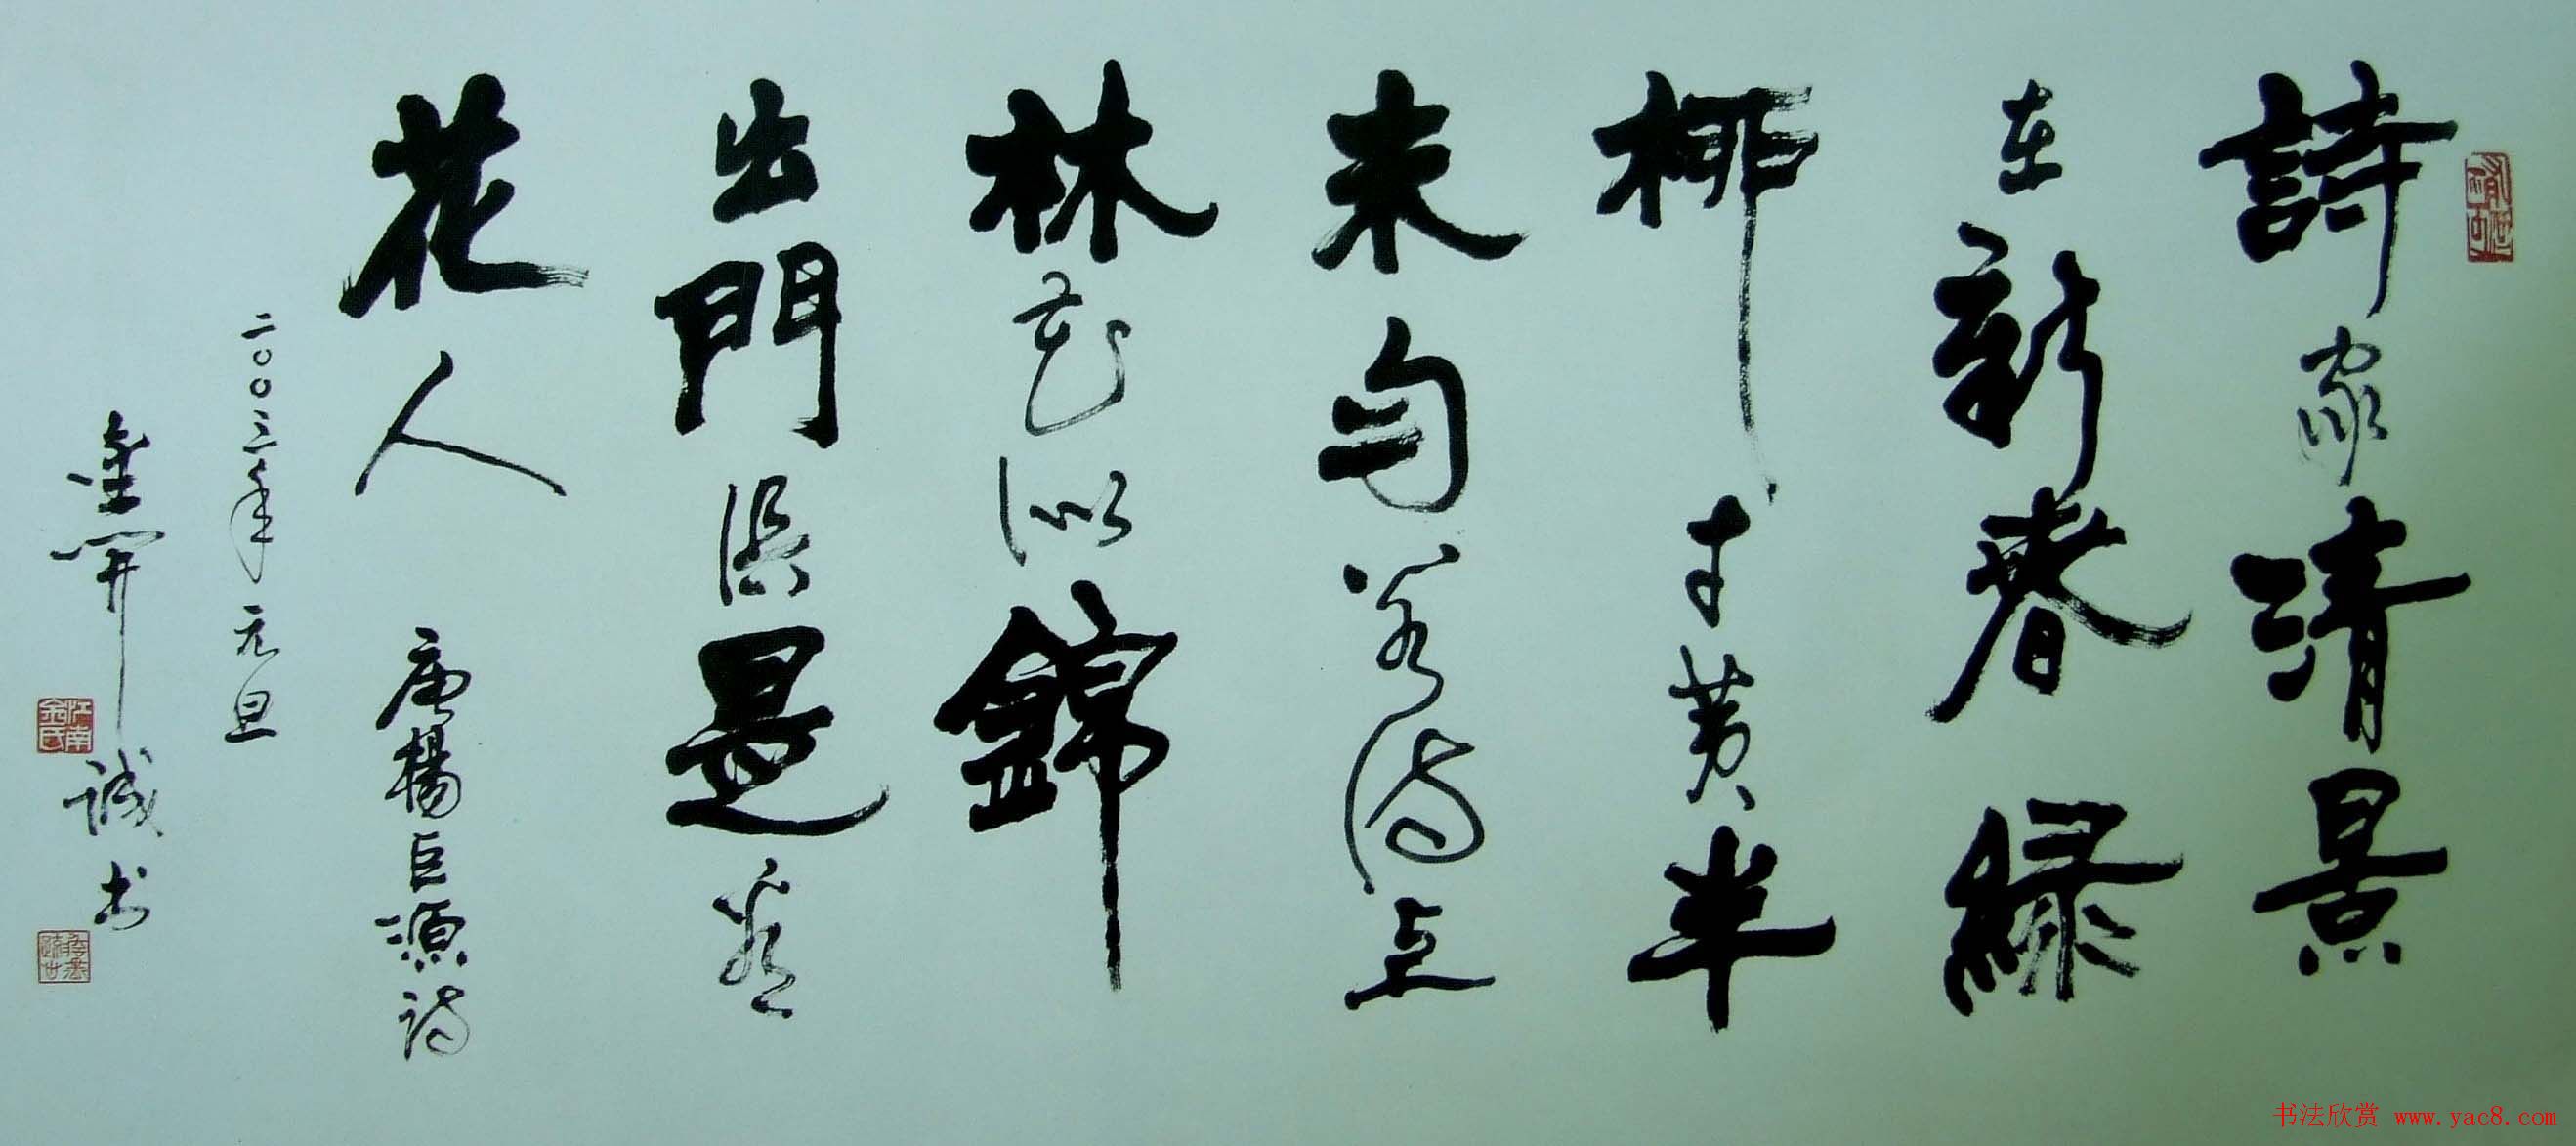 詩家清景
在新春綠
柳才黄半
未匀若待上
林花似錦
出門俱是看
花人 唐楊巨源詩
二〇〇三年元旦
金開誠书
江南金氏
书法欣赏 www.yac8.com